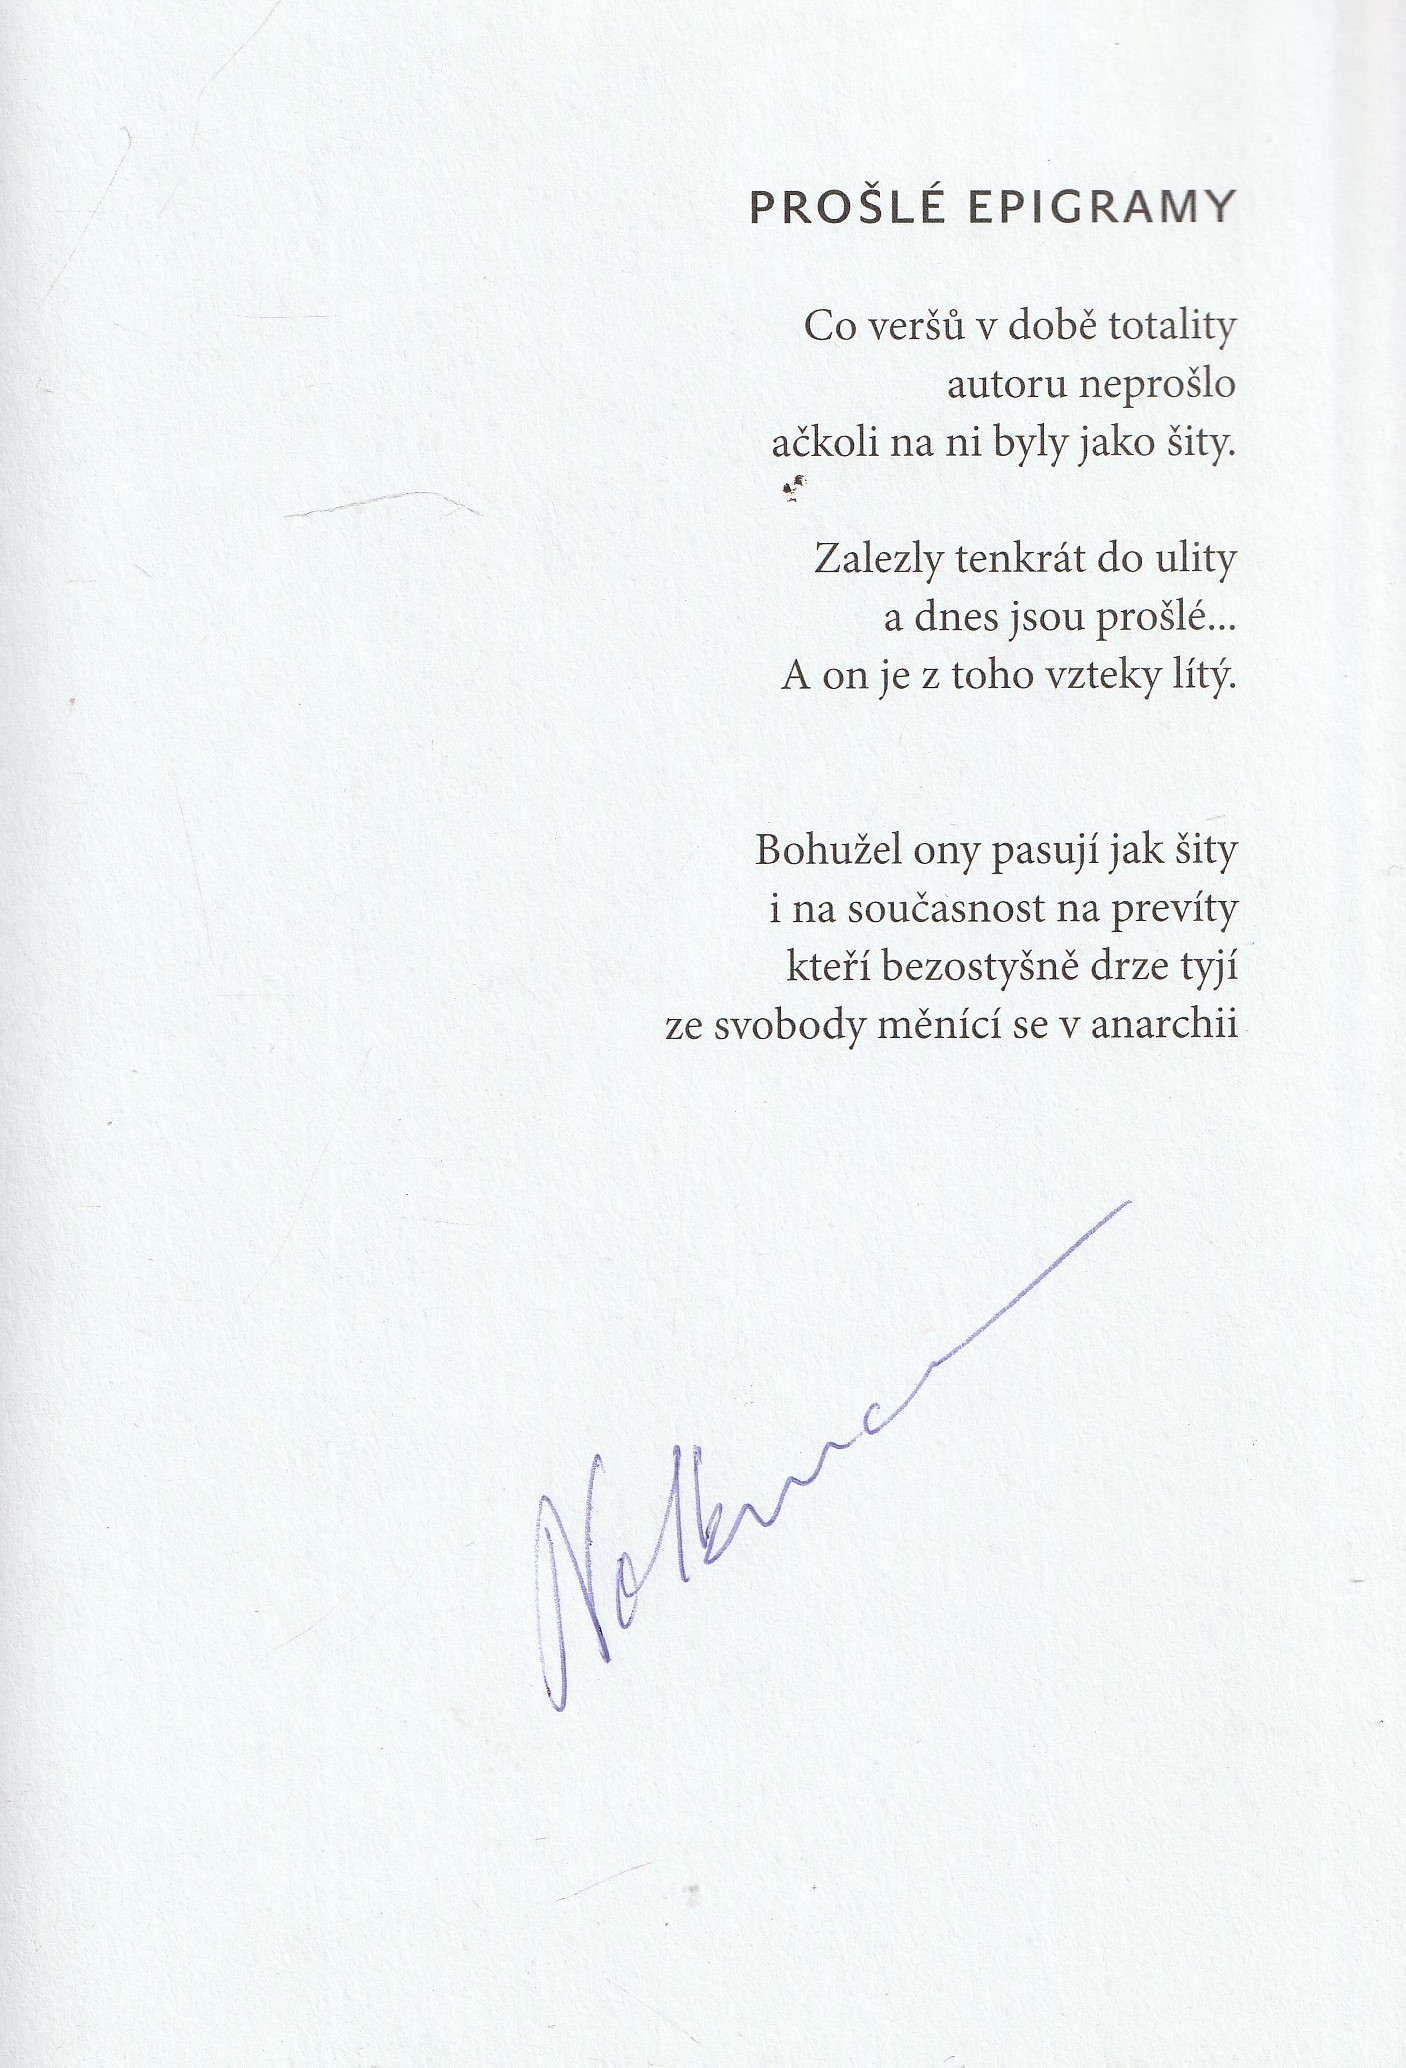 PROŠLÉ EPIGRAMY
Co veršů v době totality
autoru neprošlo
ačkoli na ni byly jako šity.
Zalezly tenkrát do ulity
a dnes jsou prošlé...
A on je z toho vzteky lítý.
Bohužel ony pasují jak šity
i na současnost na prevíty
kteří bezostyšně drze tyjí
ze svobody měnící se v anarchii